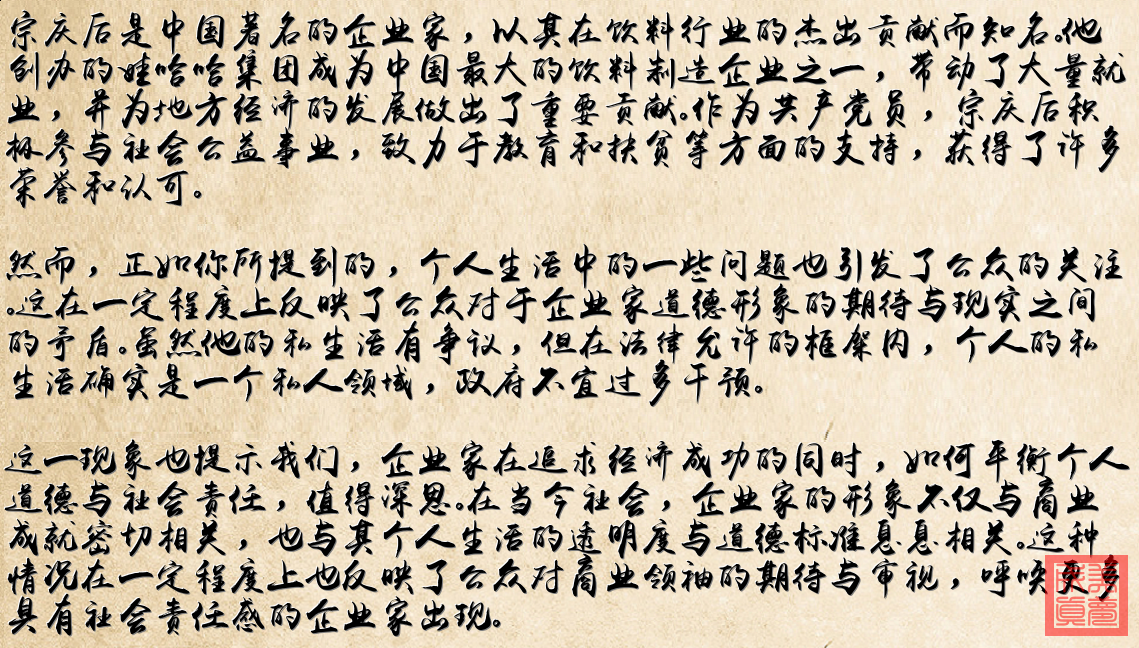 宗庆后是中国著名的企业家，以其在饮料行业的杰出贡献而知名。他
创办的娃哈哈集团成为中国最大的饮料制造企业之一，带动了大量就
业，并为地方经济的发展做出了重要贡献。作为共产党员，宗庆后积
极参与社会公益事业，致力于教育和扶贫等方面的支持，获得了许多
荣誉和认可。
然而，正如你所提到的，个人生活中的一些问题也引发了公众的关注
。这在一定程度上反映了公众对于企业家道德形象的期待与现实之间
的矛盾。虽然他的私生活有争议，但在法律允许的框架内，个人的私
生活确实是一个私人领域，政府不宜过多干预。
这一现象也提示我们，企业家在追求经济成功的同时，如何平衡个人
道德与社会责任，值得深思。在当今社会，企业家的形象不仅与商业
成就密切相关，也与其个人生活的透明度与道德标准息息相关。这种
情况在一定程度上也反映了公众对商业领袖的期待与审视，呼唤更多
具有社会责任感的企业家出现。